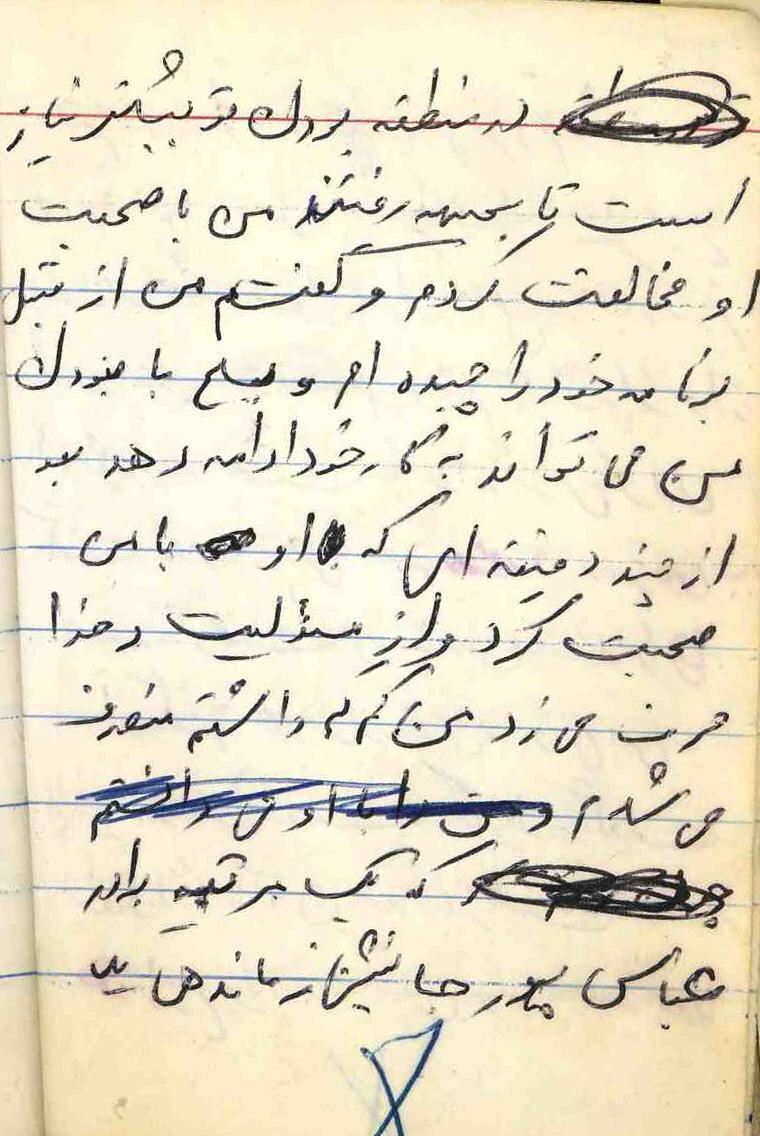 در منطقه بودن تو بیشتر نیاز
است تا بجبهه رفتن من با صحبت
او مخالفت کردم و گفتم من از قبل
برنامه خود را چیده ام و بسیج با نبودن
من می تواند به کار خود ادامه دهد بعد
از چند دقیقه ای که او با من
صحبت کرد و از مسئولیت و خدا
حرف می زد من کم کم داشتم منصرف
می شدم
که یک مرتبه برادر
عباس پور جانشین فرماندهی